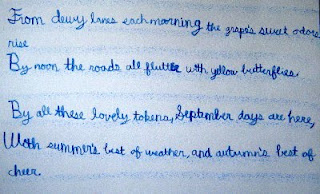 From dewy lanes each morning the grape's sweet odors
rise
By noon the roads all flutter with yellow butterflies.
By all these lovely tokens, September days are here,
With summer's best of weather, and autumn's best of
cheer.